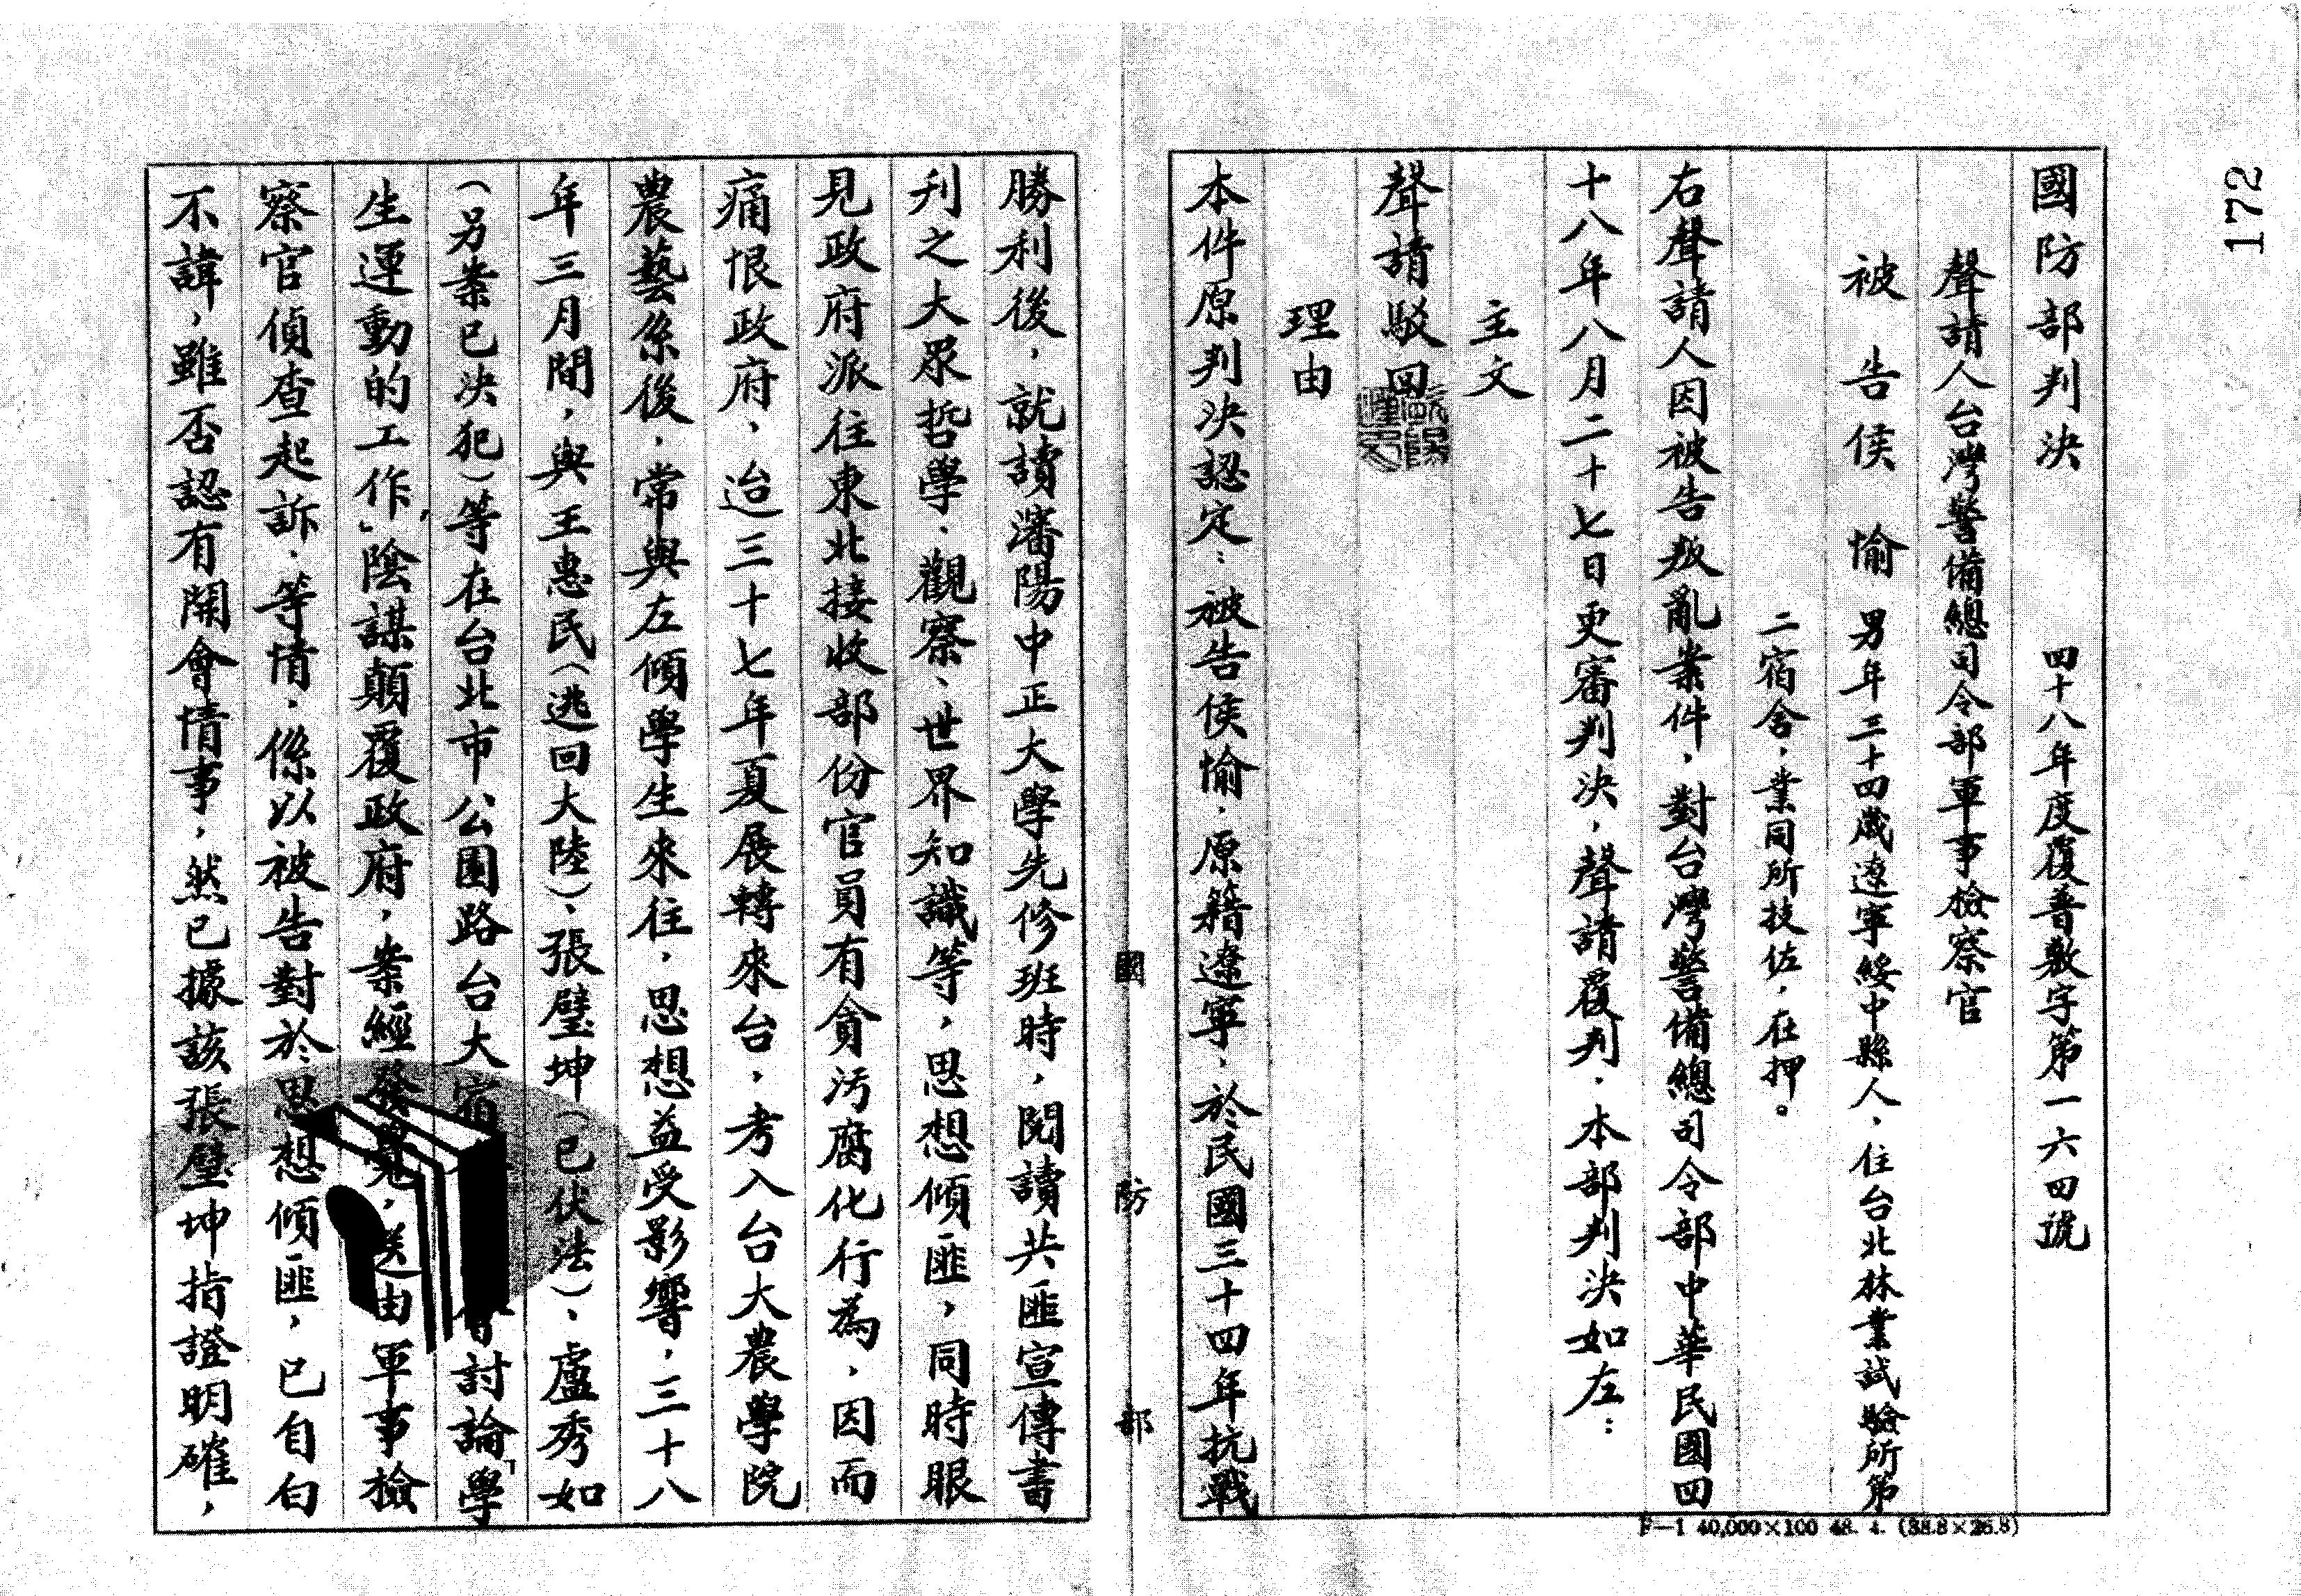 172
國防部判決 四十八年度覆普敷字第一六四號
聲請人台灣警備總司令部軍事檢察官
被告侯愉 男年三十四歲遼寧綏中縣人、住台北林業試驗所第
二宿舍、業同所技佐、在押。
右聲請人因被告叛亂案件，對台灣警備總司令部中華民國四
十八年八月二十七日更審判決，聲請覆判，本部判決如左：
主文
聲請駁回
理由
本件原判決認定：被告侯愉，原籍遼寧，於民國三十四年抗戰
勝利後，就讀瀋陽中正大學先修班時，閱讀共匪宣傳書
刋之大眾哲學、觀察、世界知識等，思想傾匪，同時眼
見政府派往東北接收部份官員有貪污腐化行為，因而
痛恨政府、迨三十七年夏展轉來台，考入台大農學院
農藝系後，常與左傾學生來往，思想益受影響，三十八
年三月間，與王惠民（逃回大陸）、張璧坤（已伏法）、盧秀如
（另案已決犯）等在台北市公園路台大宿 會討論「學
生運動的工作」，陰謀顛覆政府，案經發覺，送由軍事檢
察官偵查起訴．等情．係以被告對於思想傾匪，已自白
不諱，雖否認有開會情事，然已據該張璧坤指證明確，
國防部
F—1 40,000×100 48. 4. (38.8×26.8)